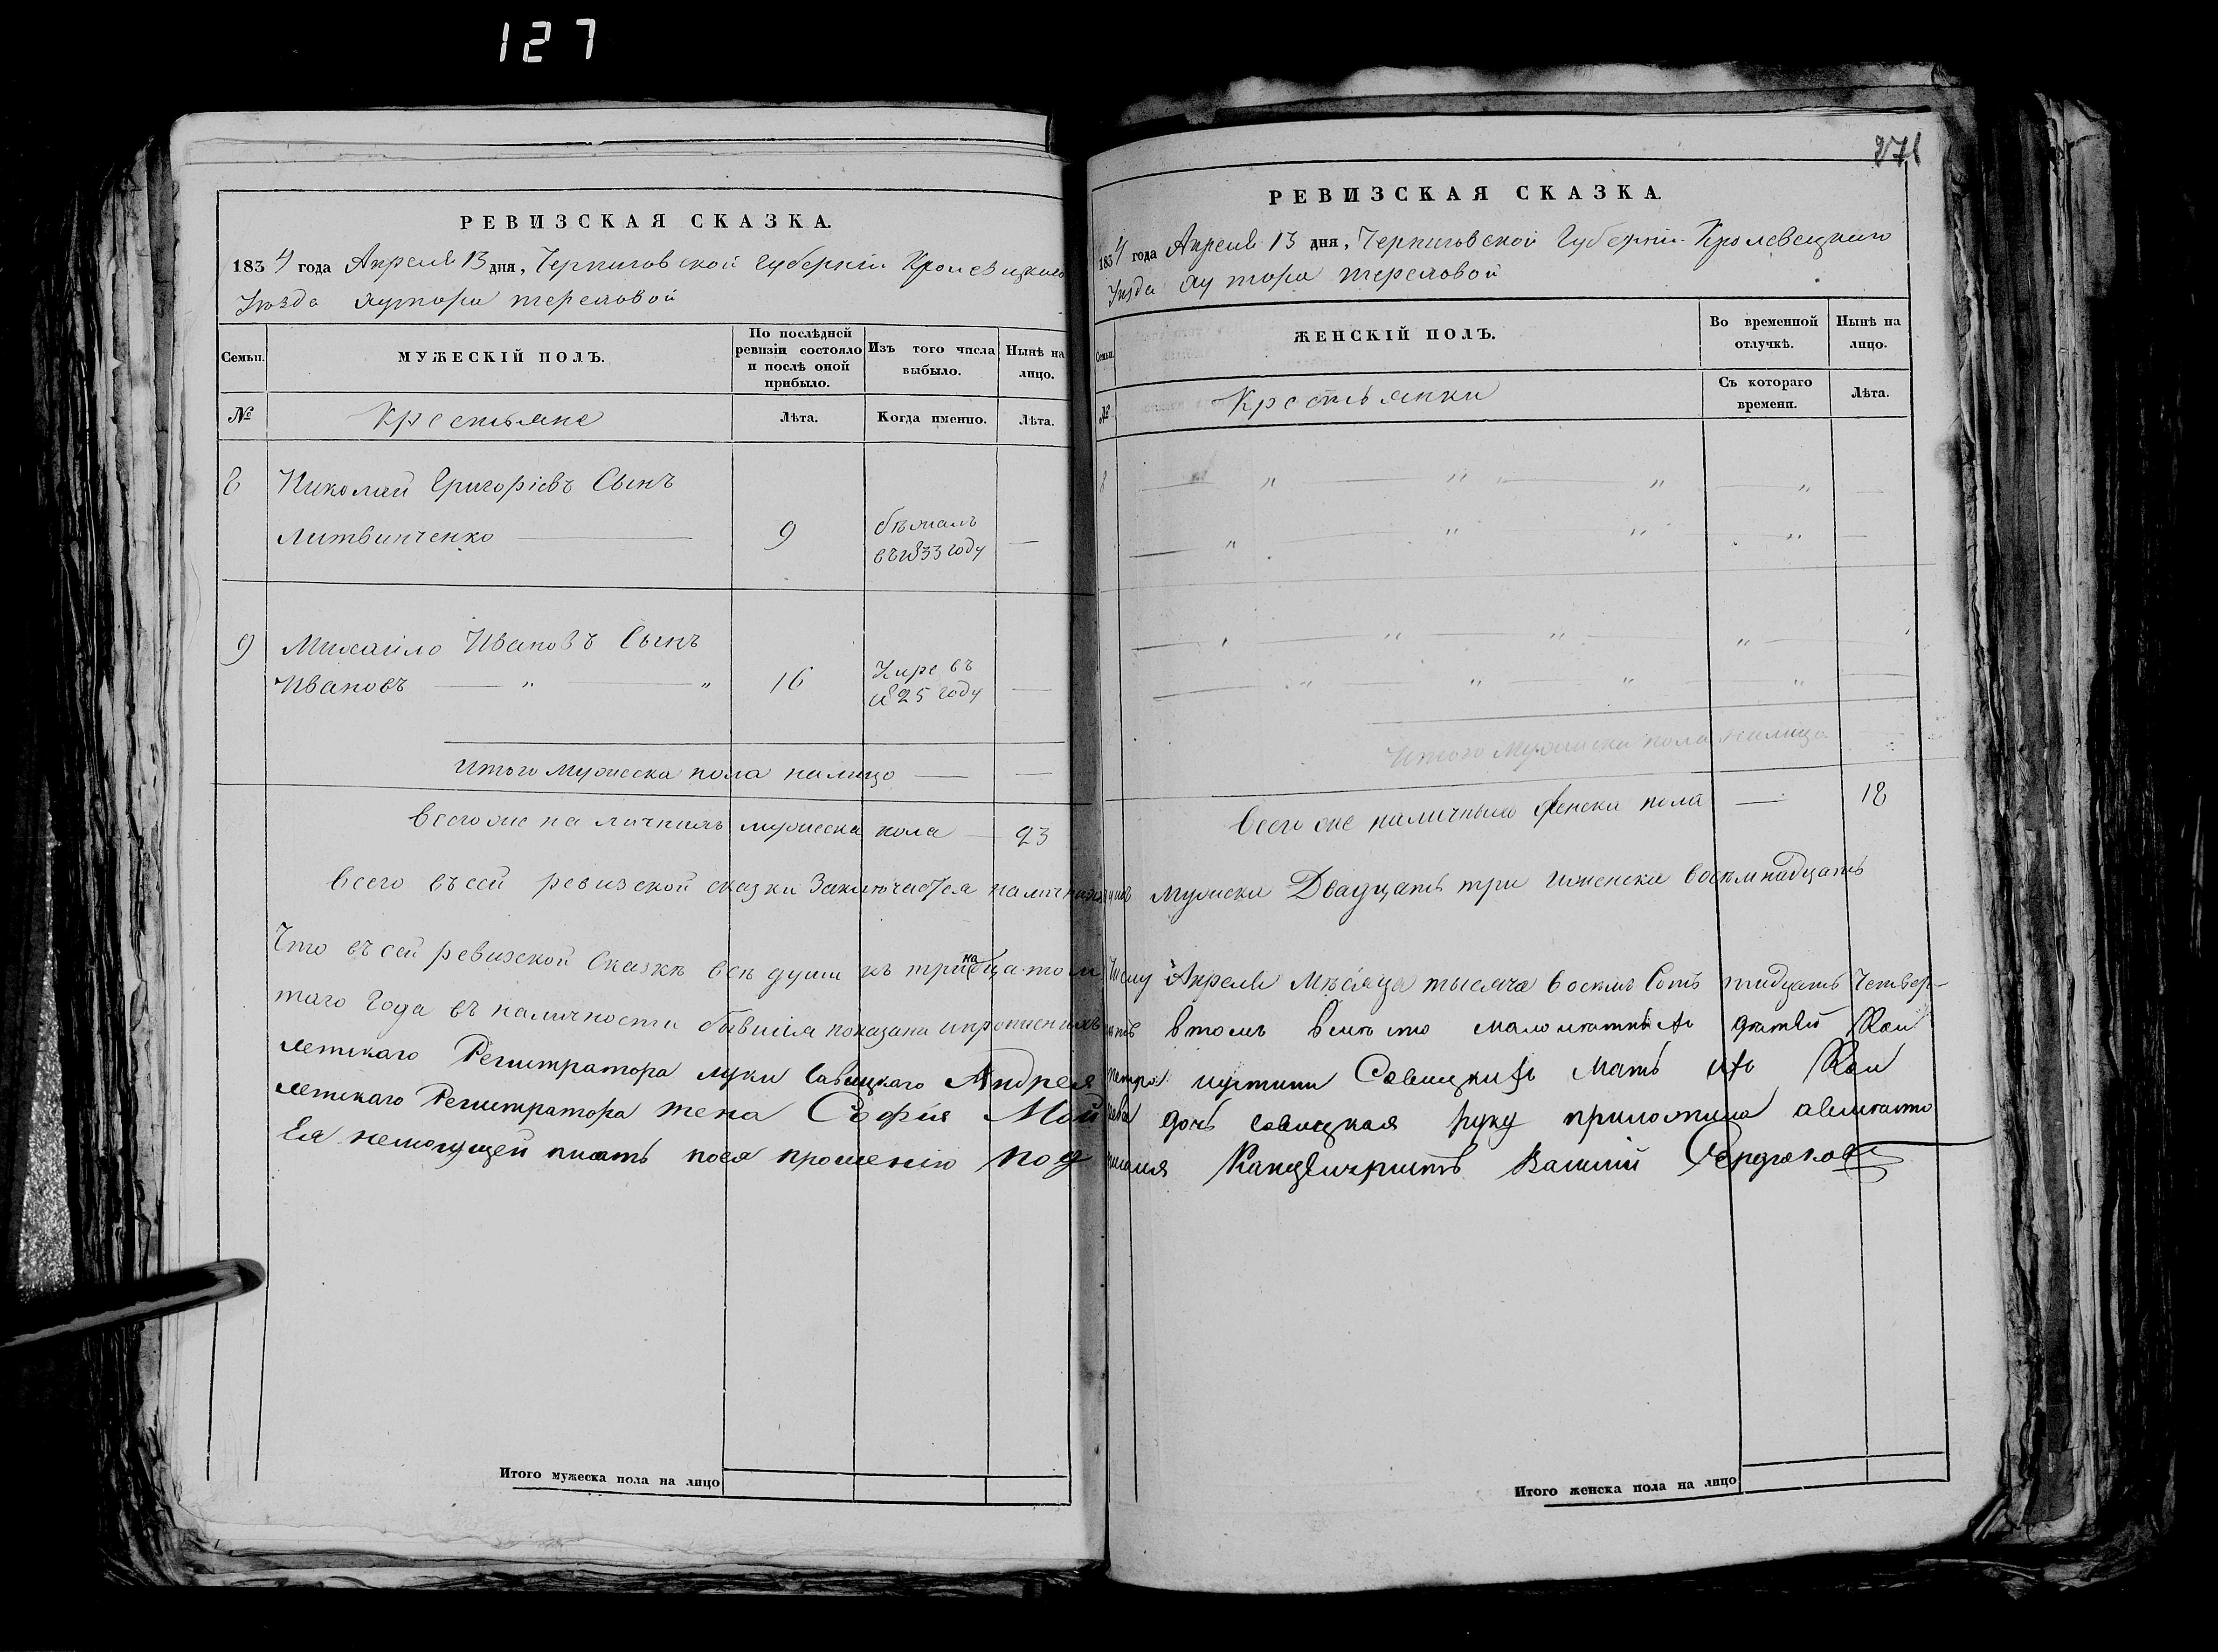 127
271
РЕВИЗСКАЯ СКАЗКА.
1834 года Апреля 13 дня, Черниговской Губерніи Кролевецкаго
Уѣзда хутора
Семьи.
МУЖЕСКІЙ ПОЛЪ.
По послѣдней ревизіи состояло и послѣ оной прибыло.
Изъ того числа выбыло.
Нынѣ на лицо.
№
Крестьяне
Лѣта.
Когда именно.
Лѣта.
8
Николай Григоріевъ Сынъ
Литвинченко
9
бѣжалъ
въ 1833 году
9
Михайло Ивановъ Сынъ
Ивановъ
16
Умре въ
1825 году
Итого мужеска пола налицо
Всего же наличныхъ мужеска пола 23
РЕВИЗСКАЯ СКАЗКА.
1834 года Апреля 13 дня, Черниговской Губерніи Кролевецкаго
Уѣзда хутора
Семьи.
ЖЕНСКІЙ ПОЛЪ.
Во временной отлучкѣ.
Нынѣ на лицо.
№
Крестьянки
Съ котораго времени.
Лѣта.
8
Итого пола налицо
Всего же наличныхъ женска пола 18
Всего въ сей ревизской сказки Заключается мужеска Двадцать три иженска восемнадцать
Что въ сей ревизской Сказкѣ всѣ души къ тринадцатому Числу Апреля Мѣсяца тысяча восемь Сотъ тридцать Четвер-
таго Года въ наличности бывшия показаны въ томъ вмѣсто малолѣтныхъ дѣтей Кол
лежскаго Регистратора Луки Савицкаго Андрея Петра Савицкихъ Мать ихъ Кол
лежскаго Регистратора жена Софія дочь Савицкая руку приложила авмѣсто
Ея немогущей писать поея прошенію Канцеляристъ
Итого мужеска пола на лицо
Итого женска пола на лицо